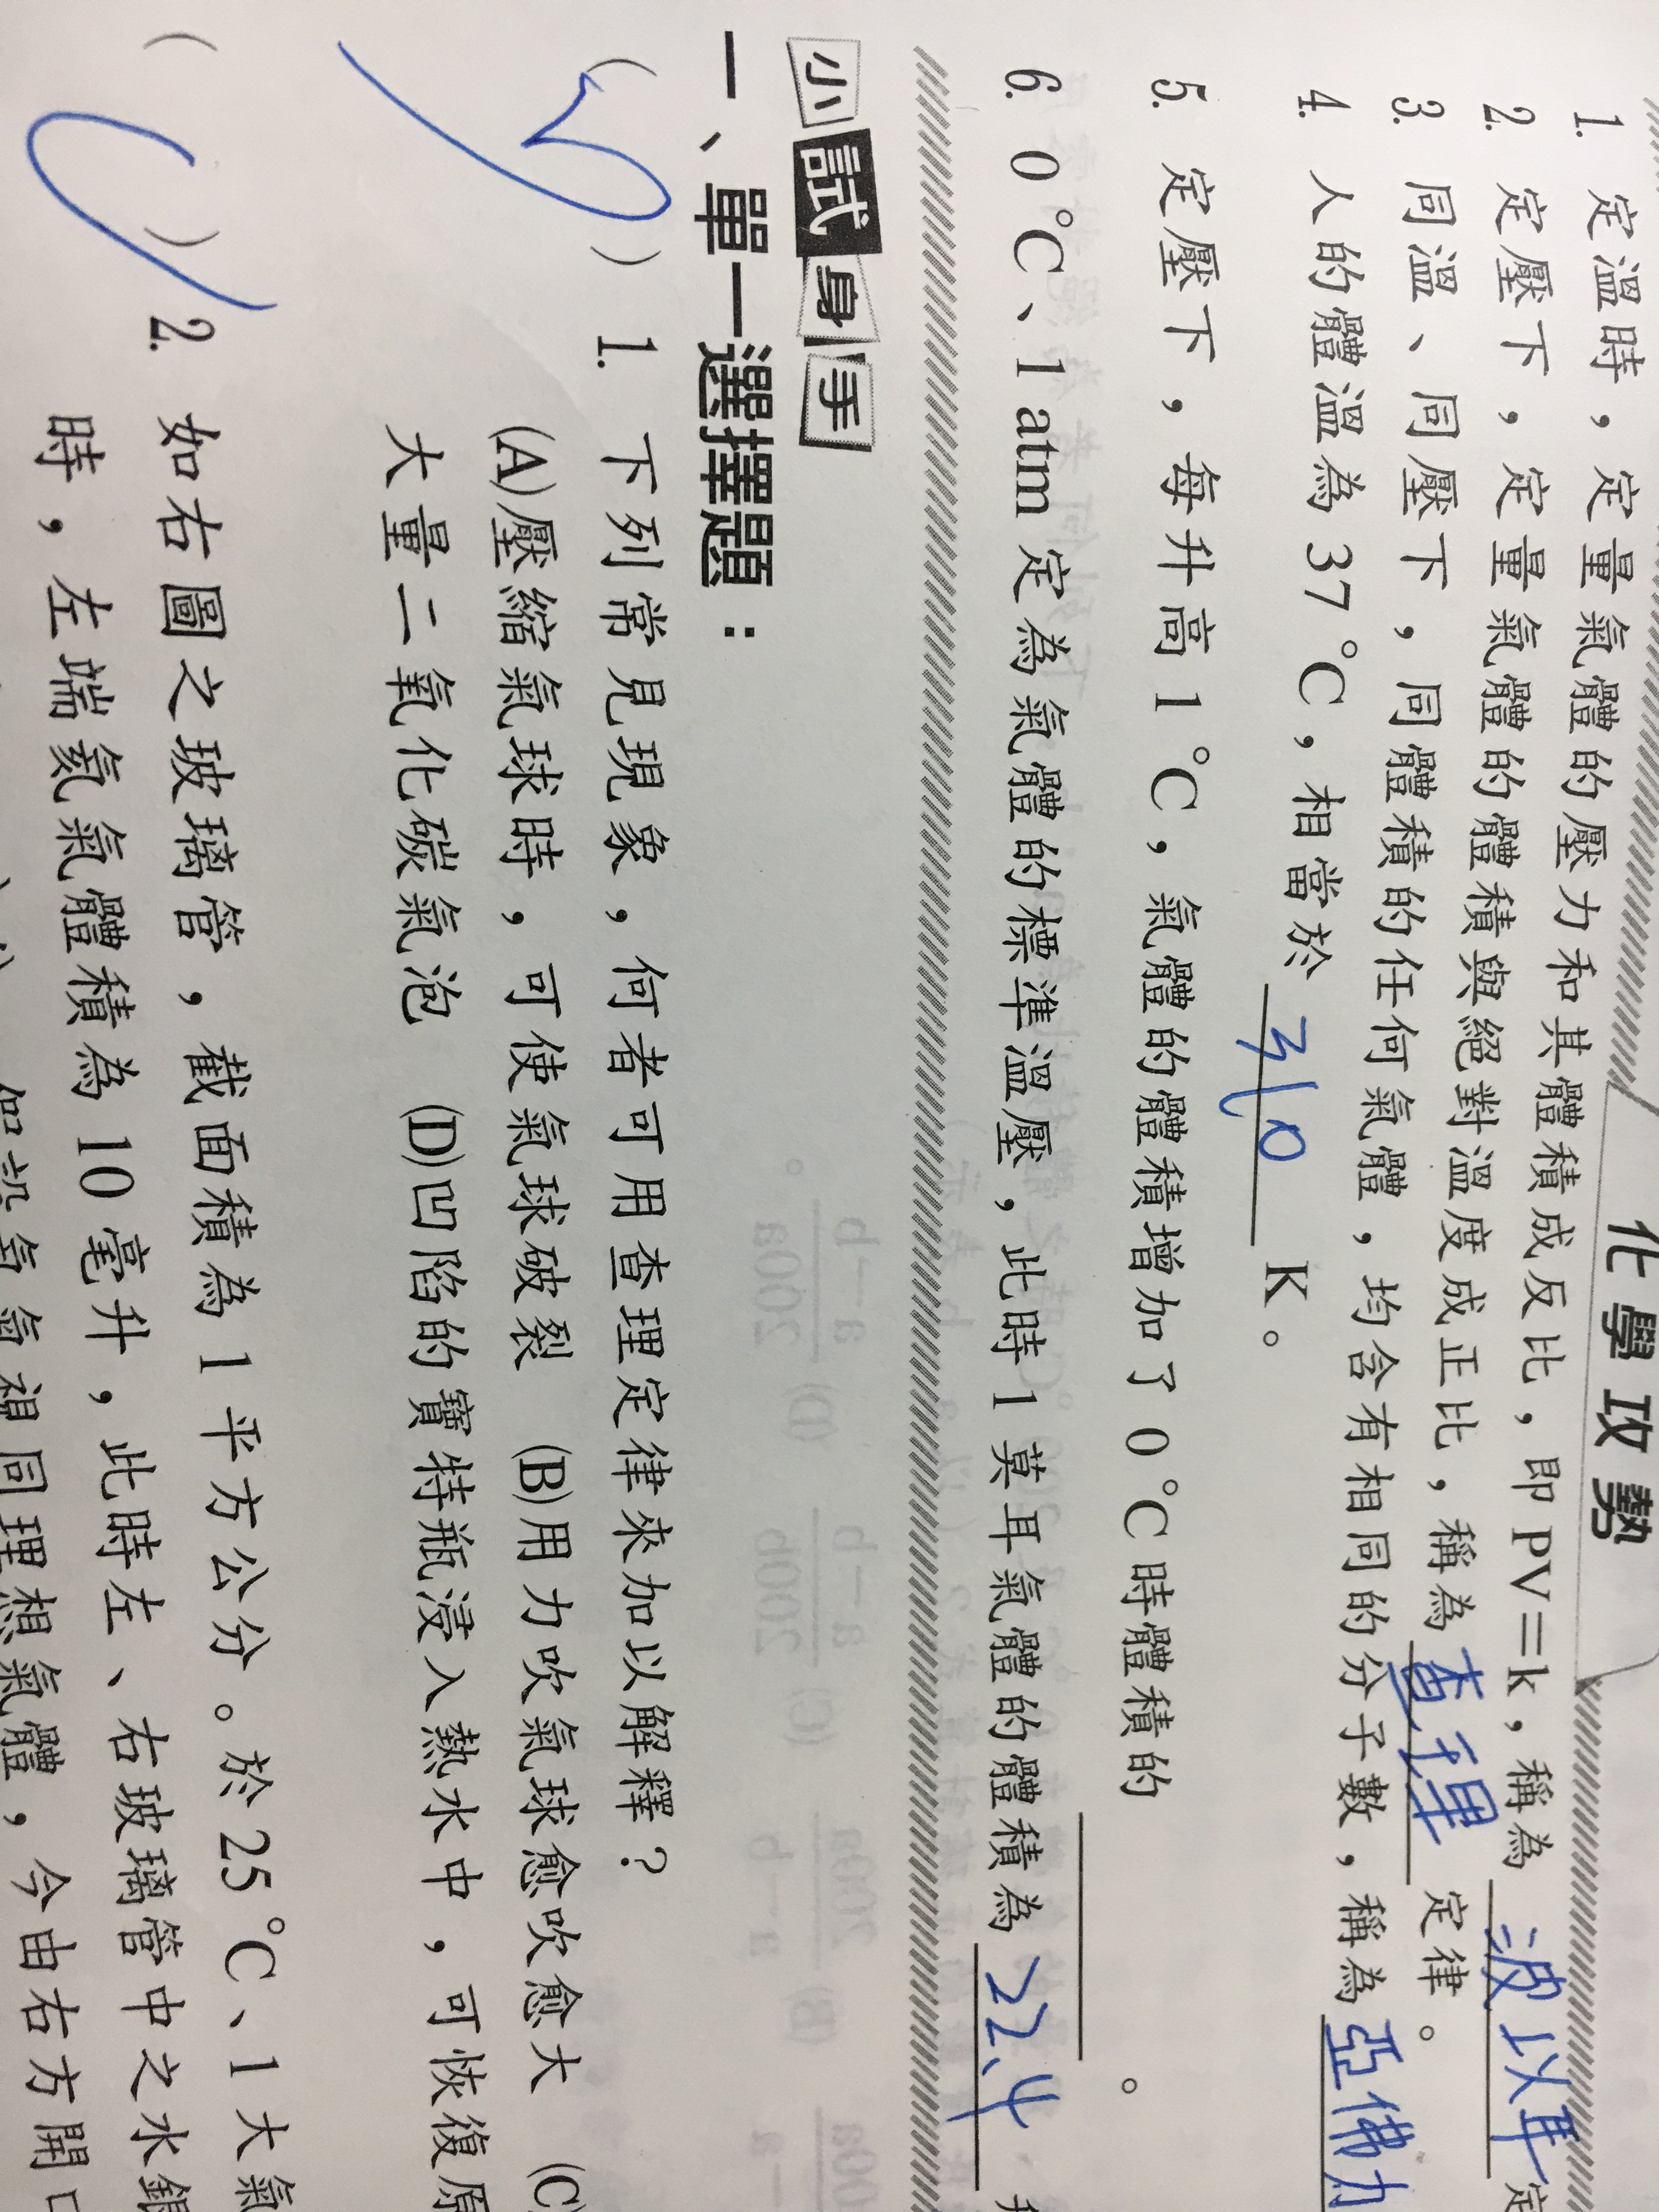 化學攻勢
1. 定溫時，定量氣體的壓力和其體積成反比，即 PV＝k，稱為 波以耳 定
2. 定壓下，定量氣體的體積與絕對溫度成正比，稱為 查理 定律。
3. 同溫、同壓下，同體積的任何氣體，均含有相同的分子數，稱為 亞佛加
4. 人的體溫為 37 ℃，相當於 310 K。
5. 定壓下，每升高 1 ℃，氣體的體積增加了 0 ℃時體積的 。
6. 0 ℃、1 atm 定為氣體的標準溫壓，此時 1 莫耳氣體的體積為 22.4
小試身手
一、單一選擇題：
( D ) 1. 下列常見現象，何者可用查理定律來加以解釋？
(A)壓縮氣球時，可使氣球破裂 (B)用力吹氣球愈吹愈大 (C)
大量二氧化碳氣泡 (D)凹陷的寶特瓶浸入熱水中，可恢復原
( ) 2. 如右圖之玻璃管，截面積為 1 平方公分。於 25 ℃、1 大氣
時，左端氦氣體積為 10 毫升，此時左、右玻璃管中之水銀
假設氦氣視同理想氣體，今由右方開口